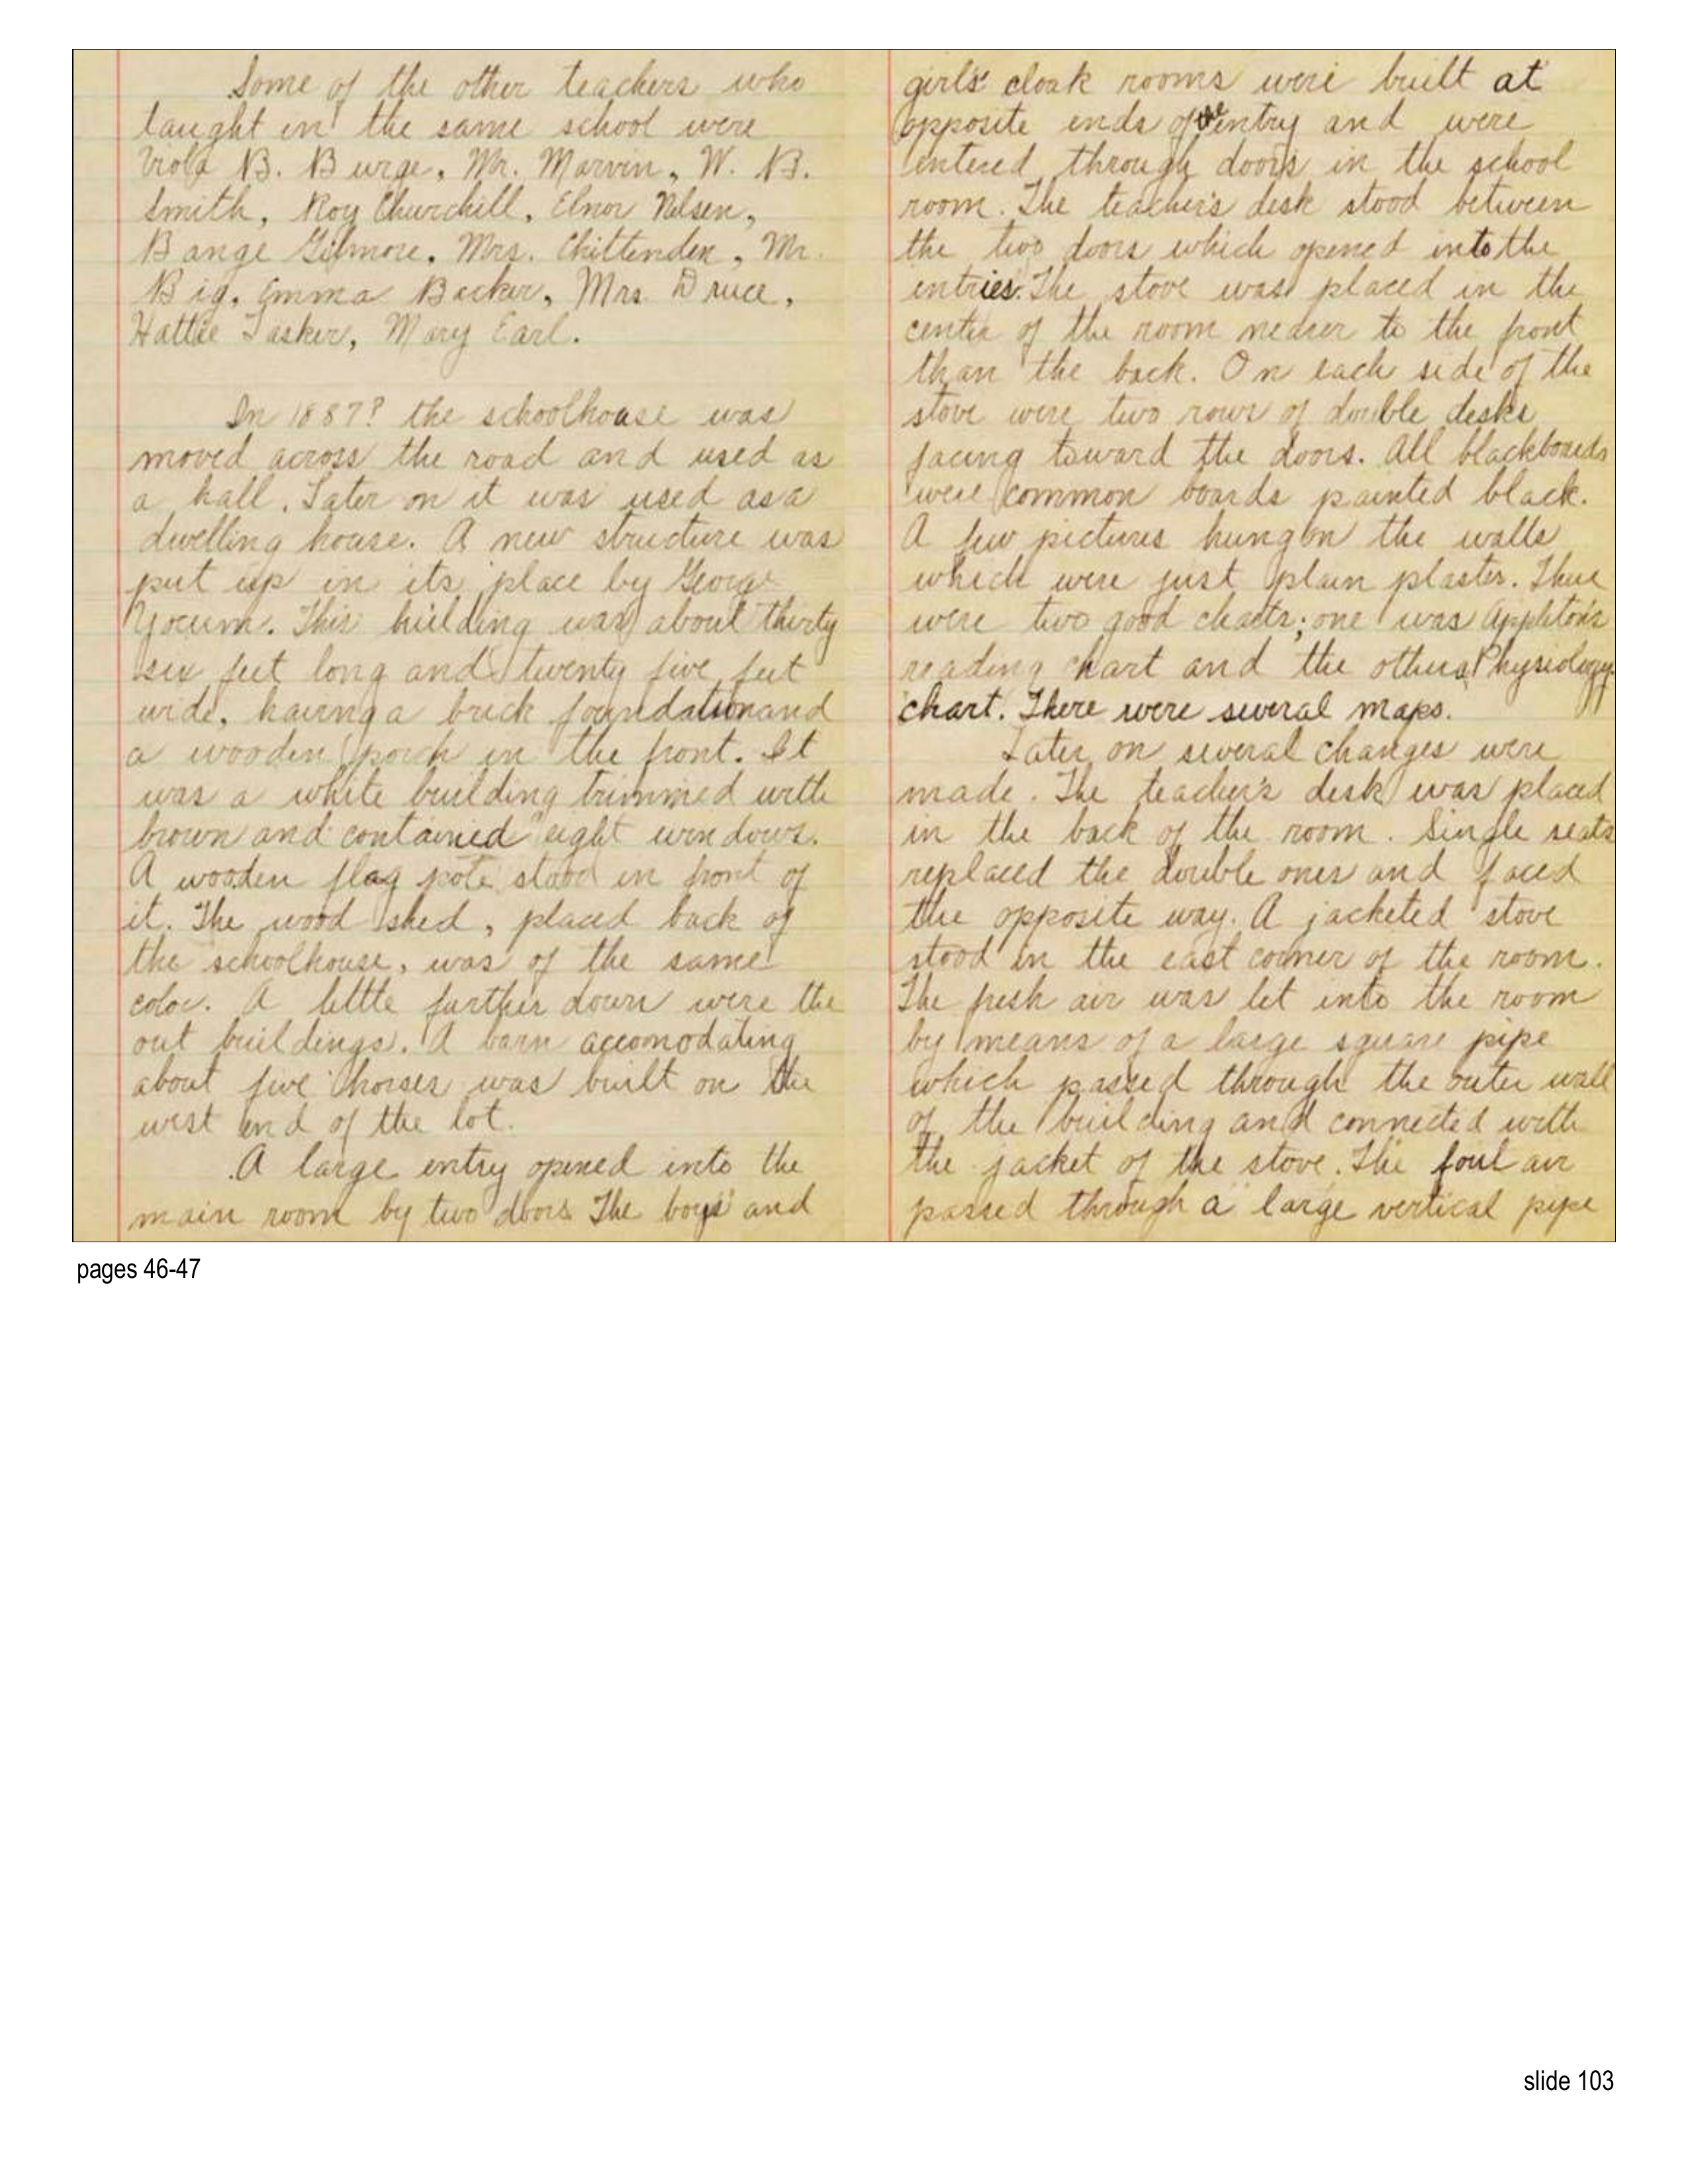 Some of the other teachers who
taught in the same school were
Viola B. Burge, Mr. Marvin, W. B.
Smith, Roy Churchill, Elnor Nelsen,
Bange Gilmore, Mrs. Chittenden, Mr.
Big, Emma Backer, Mrs. Druce,
Hattie Tasker, Mary Earl.
In 1887? the schoolhouse was
moved across the road and used as
a hall. Later on it was used as a
dwelling house. A new structure was
put up in its place by George
Yocum. This building was about thirty
six feet long and twenty five feet
wide, having a brick foundation and
a wooden porch in the front. It
was a white building trimmed with
brown and contained eight windows.
A wooden flag pole stood in front of
it. The wood shed, placed back of
the schoolhouse, was of the same
color. A little further down were the
out buildings. A barn accomodating
about five horses was built on the
west end of the lot.
A large entry opened into the
main room by two doors. The boys' and
girls' cloak rooms were built at
opposite ends of the entry and were
entered through doors in the school
room. The teacher's desk stood between
the two doors which opened into the
entries. The stove was placed in the
center of the room nearer to the front
than the back. On each side of the
stove were two rows of double desks
facing toward the doors. All blackboards
were common boards painted black.
A few pictures hung on the walls
which were just plain plaster. There
were two good charts; one was Appleton's
reading chart and the other a Physiology
chart. There were several maps.
Later on several changes were
made. The teacher's desk was placed
in the back of the room. Single seats
replaced the double ones and faced
the opposite way. A jacketed stove
stood in the east corner of the room.
The fresh air was let into the room
by means of a large square pipe
which passed through the outer wall
of the building and connected with
the jacket of the stove. The foul air
passed through a large vertical pipe
pages 46-47
slide 103